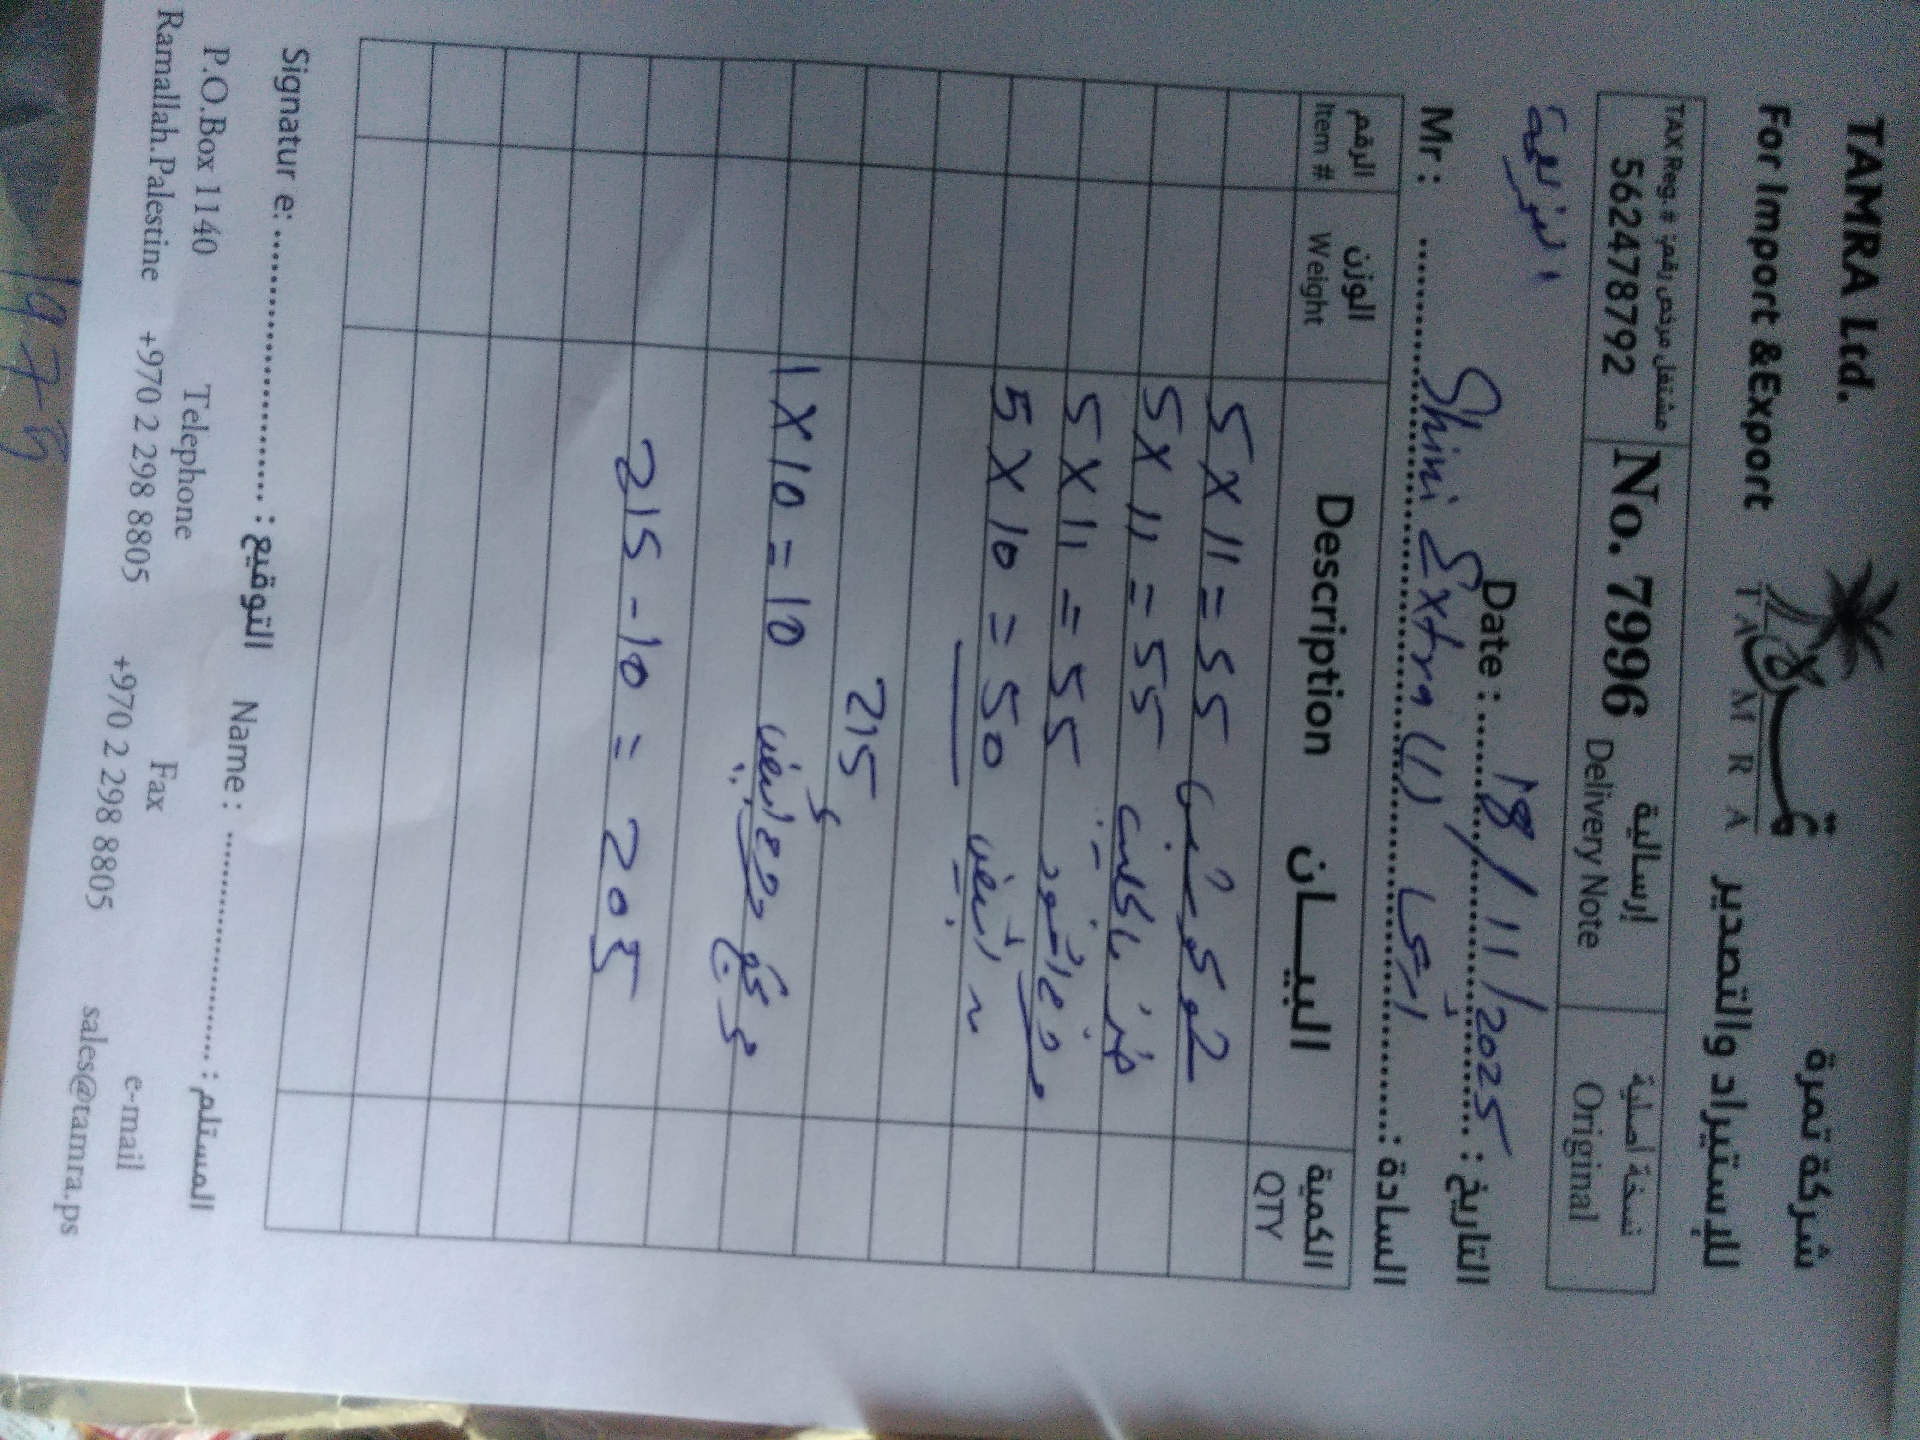 TAMRA Ltd.
For Import &Export
تمرة
TAMRA
شركة تمرة
للإستيراد والتصدير
مشتغل مرخص رقم: TAX Reg.#
562478792
No. 7996
إرسالية
Delivery Note
نسخة أصلية
Original
Date : 18/11/2025 : التاريخ
Mr : Shini Extra (1) : السادة
الرقم
Item #
الوزن
Weight
Description البيـــان
الكمية
QTY
5 X 11 = 55
5 X 11 = 55
5 X 11 = 55
5 X 10 = 50
215
1 X 10 = 10
215 - 10 = 205
Signatur e: : التوقيع Name : : المستلم
P.O.Box 1140
Ramallah.Palestine
Telephone
+970 2 298 8805
Fax
+970 2 298 8805
e-mail
sales@tamra.ps